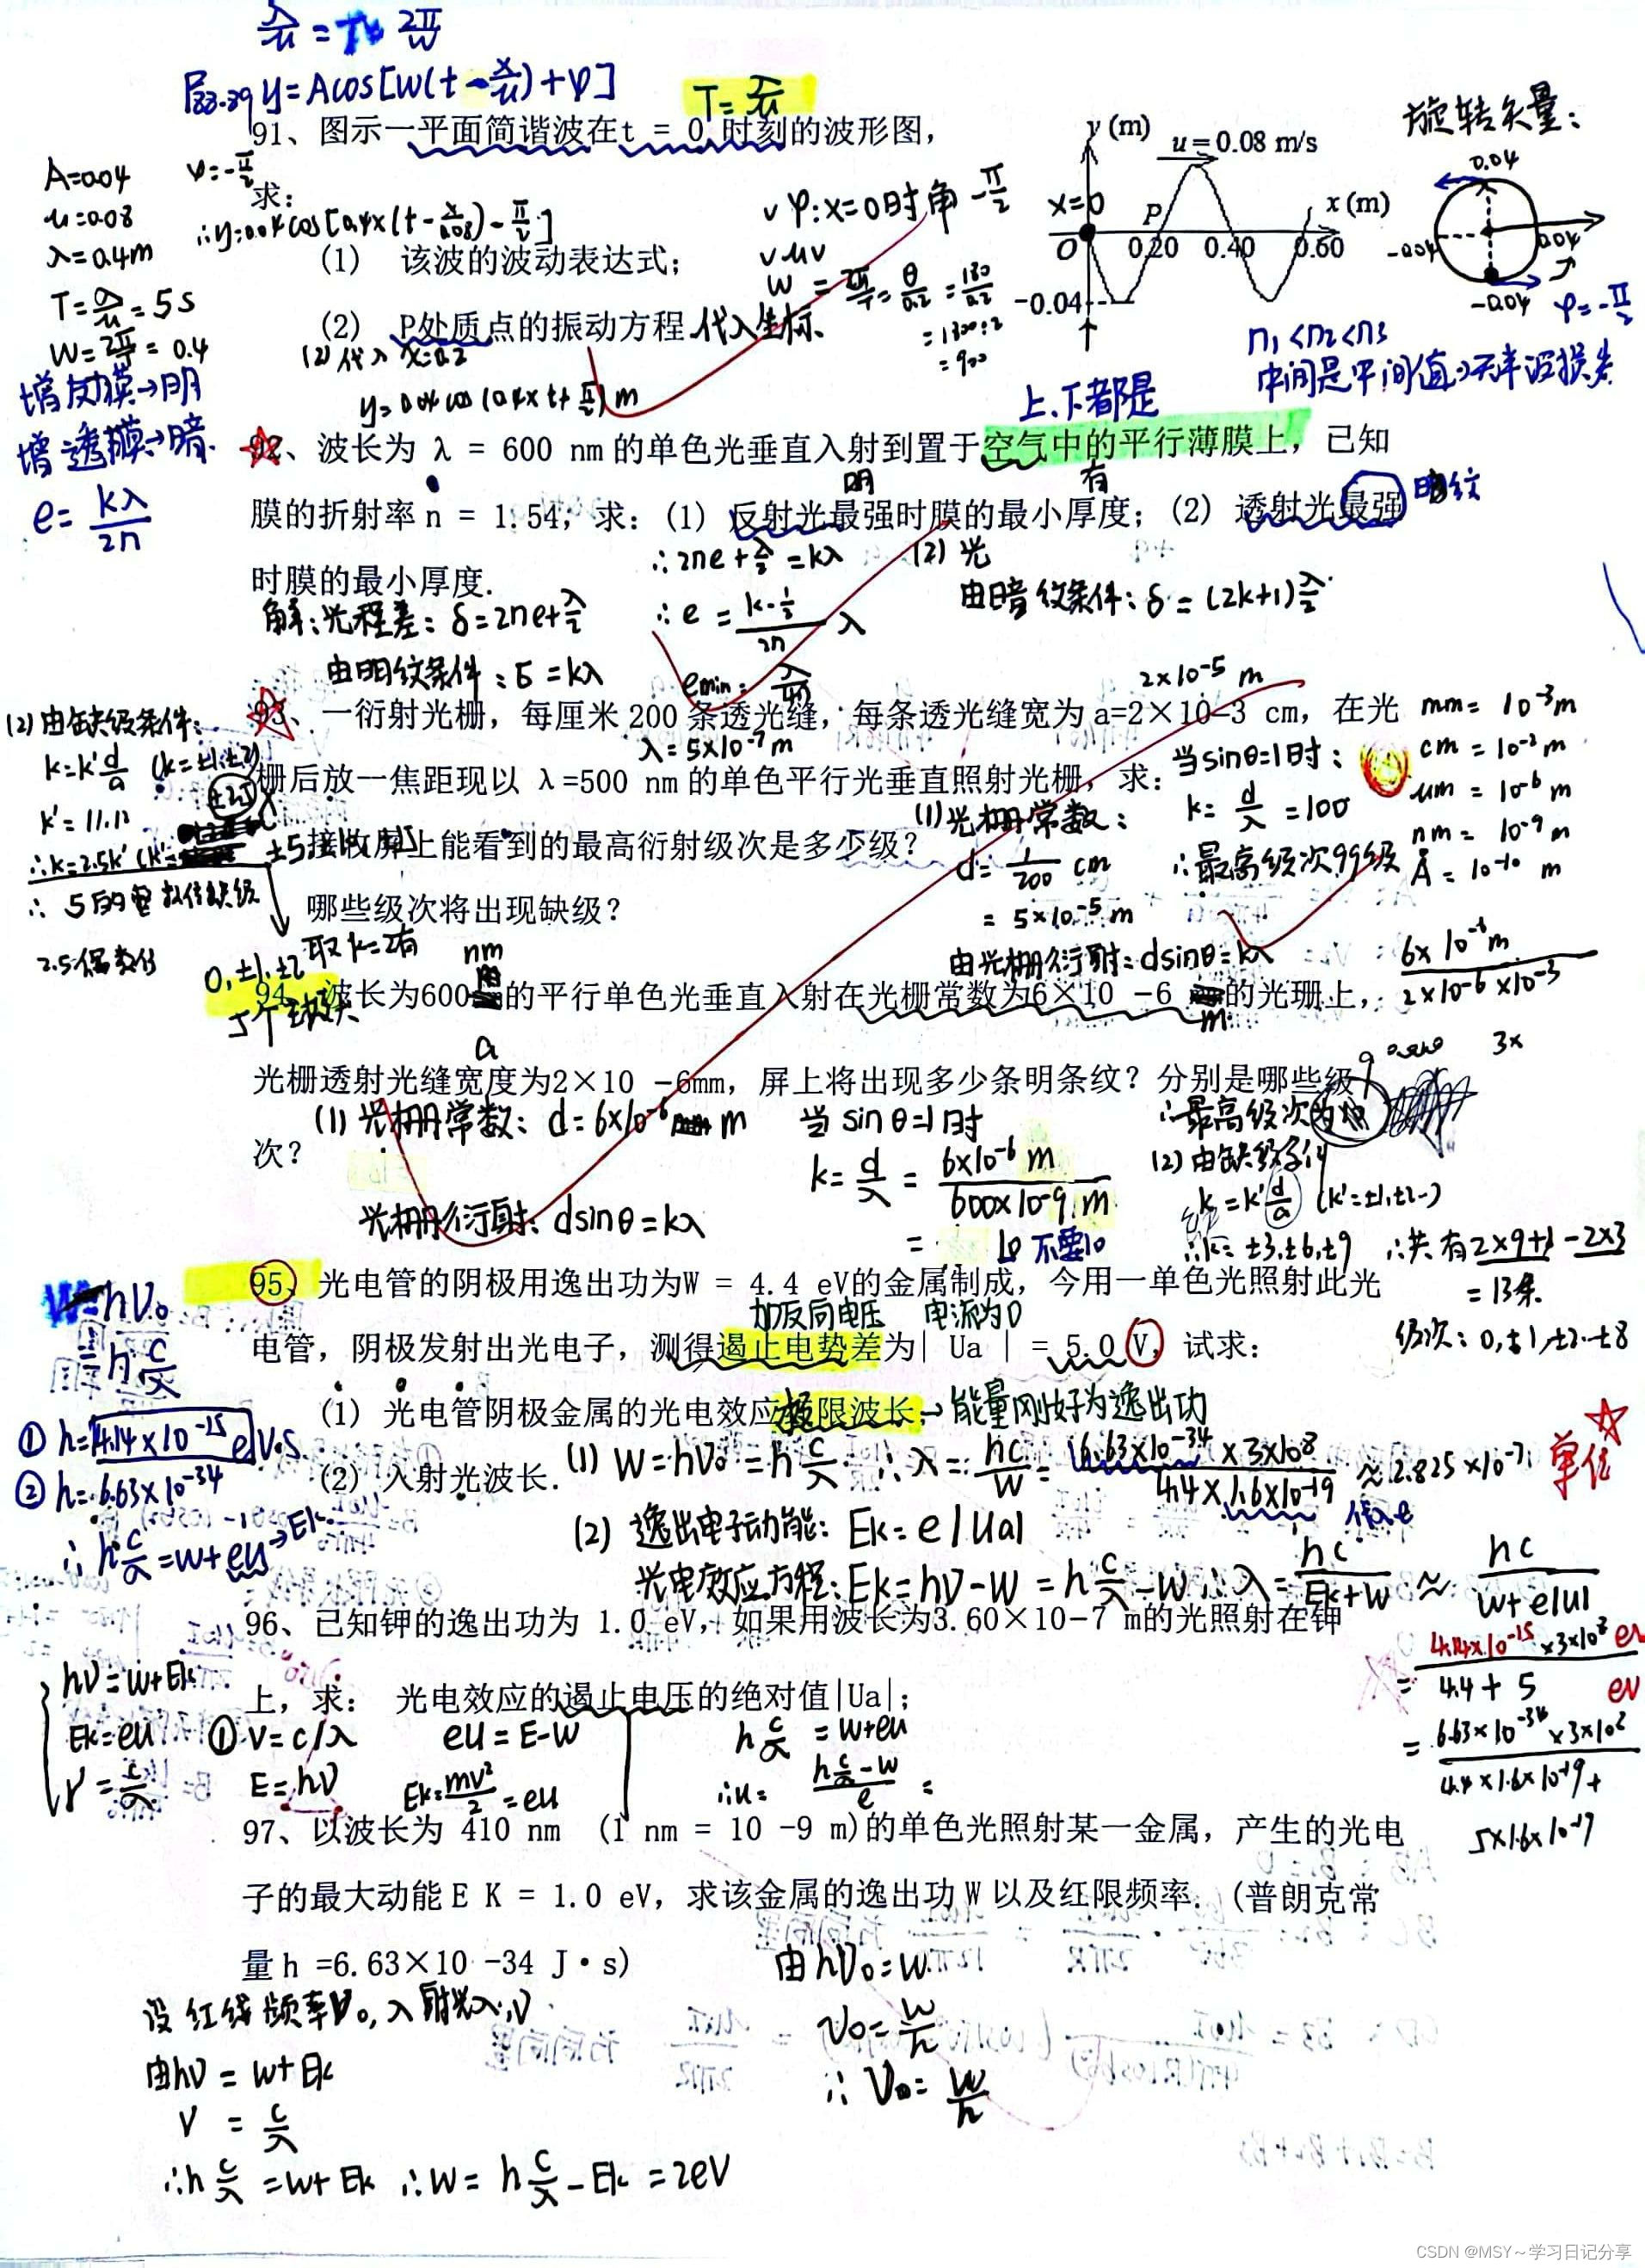 λ/u = T = 2π/W
y=Acos[W(t-x/u)+φ]
T=λ/u
91、图示一平面简谐波在t = 0 时刻的波形图，
求：
(1) 该波的波动表达式；
(2) P处质点的振动方程
代入坐标
A=0.04
u=0.08
λ=0.4m
T=λ/u=5s
W=2π/T=0.4
φ=-π/2
∴y=0.04cos[0.4π(t-x/0.08)-π/2]
(2)代入 x=0.2
y=0.04cos(0.4πt+π/2)m
φ:x=0时角 -π/2
W=2π/T=θ/0.2=180/0.2
=1800÷2
=900
y (m)
u = 0.08 m/s
x=0
P
x (m)
O
0.20 0.40 0.60
-0.04
旋转矢量：
0.04
-0.04
0.04
-0.04
φ=-π/2
n₁<n₂<n₃
中间是中间值→无半波损失
上、下都是
增反膜→明
增透膜→暗
e=kλ/2n
92、波长为 λ = 600 nm的单色光垂直入射到置于空气中的平行薄膜上，已知
明
有
膜的折射率n = 1.54，求：(1) 反射光最强时膜的最小厚度；(2) 透射光最强
明纹
时膜的最小厚度.
解：光程差：δ=2ne+λ/2
由明纹条件：δ=kλ
∴2ne+λ/2=kλ
∴e=(k-1/2)/2n λ
emin=λ/4n
(2)光
由暗纹条件：δ=(2k+1)λ/2
2×10⁻⁵ m
93、一衍射光栅，每厘米 200 条透光缝，每条透光缝宽为 a=2×10-3 cm，在光
λ=5×10⁻⁷m
栅后放一焦距现以 λ=500 nm的单色平行光垂直照射光栅，求：
接收屏上能看到的最高衍射级次是多少级？
哪些级次将出现缺级？
mm= 10⁻³m
cm = 10⁻²m
um = 10⁻⁶m
nm= 10⁻⁹m
Å= 10⁻¹⁰ m
(1)光栅常数：
d=1/200 cm
= 5×10⁻⁵m
由光栅衍射：dsinθ=kλ
当sinθ=1时：
k=d/λ=100
∴最高级次99级
(2)由缺级条件：
k=k'd/a (k=±1,±2)
k'=11.12
∴k=2.5k'
∴ 5的整数倍缺级
取k=2有
0,±1,±2
5个主极大
nm
94、波长为600 的平行单色光垂直入射在光栅常数为6×10 -6 的光珊上，
m
a
光栅透射光缝宽度为2×10 -6mm，屏上将出现多少条明条纹？分别是哪些级
次？
6×10⁻⁶m/2×10⁻⁶×10⁻³
3x
(1)光栅常数：d=6×10⁻⁶ m
光栅衍射：dsinθ=kλ
当sinθ=1时
k=d/λ=6×10⁻⁶ m/600×10⁻⁹ m
= 10 不要10
∴最高级次为9
(2)由缺级条件
k=k'd/a (k'=±1,±2…)
∴k=±3,±6,±9
∴共有2×9+1-2×3
=13条
级次：0,±1,±2…±8
95、光电管的阴极用逸出功为W = 4.4 eV的金属制成，今用一单色光照射此光
加反向电压 电流为0
电管，阴极发射出光电子，测得遏止电势差为| Ua | = 5.0 V，试求：
(1) 光电管阴极金属的光电效应极限波长
→能量刚好为逸出功
(2) 入射光波长.
W=hν₀
=h c/λ
①h=4.14×10⁻¹⁵eV·s
②h=6.63×10⁻³⁴
∴h c/λ=W+eU→Ek
(1) W=hν₀=h c/λ ∴λ=hc/W=6.63×10⁻³⁴×3×10⁸/4.4×1.6×10⁻¹⁹≈2.825×10⁻⁷
单位
(2) 逸出电子动能：Ek=e|Ua|
光电效应方程：Ek=hν-W=h c/λ-W∴λ=hc/Ek+W≈hc/W+e|U|
=4.14×10⁻¹⁵×3×10⁸ eV/4.4+5 eV
=6.63×10⁻³⁴×3×10²/4.4×1.6×10⁻¹⁹+
5×1.6×10⁻¹⁹
96、已知钾的逸出功为 1.0 eV，如果用波长为3.60×10-7 m的光照射在钾
上，求： 光电效应的遏止电压的绝对值|Ua|；
hν=W+Ek
Ek=eU
ν=c/λ
①ν=c/λ
E=hν
eU=E-W
Ek=mv²/2=eU
h c/λ=W+eU
∴U=(h c/λ-W)/e=
97、以波长为 410 nm (1 nm = 10 -9 m)的单色光照射某一金属，产生的光电
子的最大动能E K = 1.0 eV，求该金属的逸出功W以及红限频率. (普朗克常
量h =6.63×10 -34 J·s)
设红线频率ν₀,入射光λ,ν
由hν=W+Ek
ν=c/λ
∴h c/λ=W+Ek ∴W=h c/λ-Ek=2eV
由hν₀=W
ν₀=W/h
∴ν₀=W/h
CSDN @MSY～学习日记分享